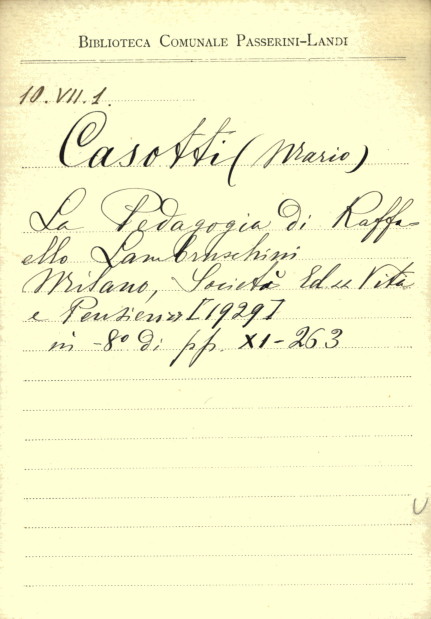 BIBLIOTECA COMUNALE PASSERINI-LANDI
10.VII.1.
Casotti (Mario)
La Pedagogia di Raffa-
ello Lambruschini
Milano, Società Ed. "Vita
e Pensiero" [1929]
in -8° di pp. XI-263